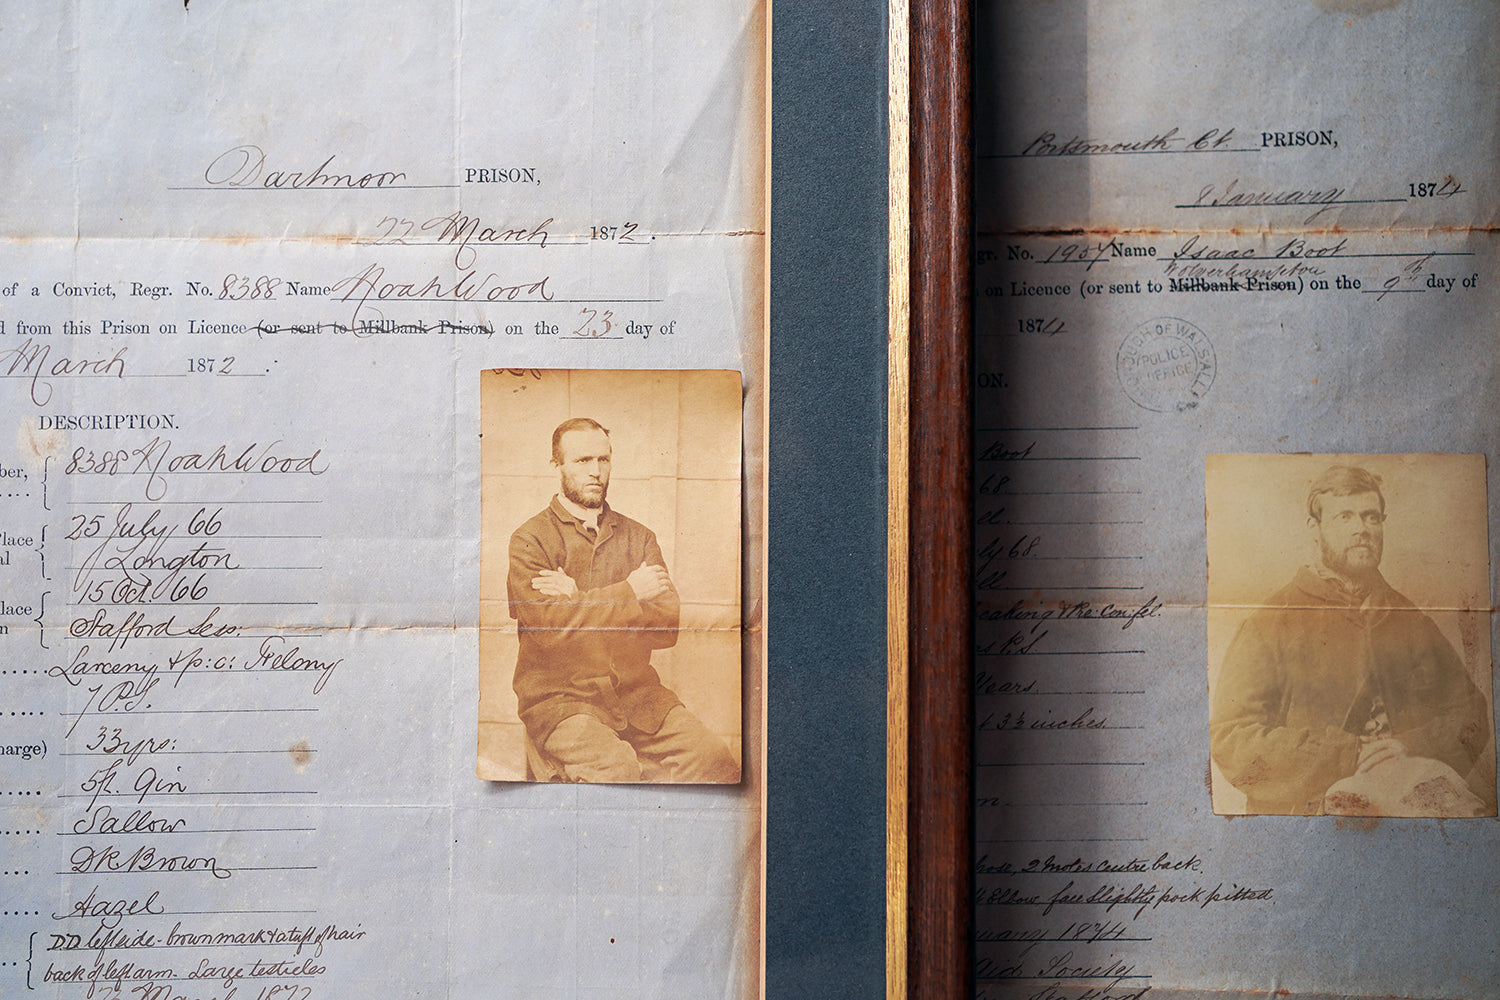 Dartmoor PRISON,
22 March 1872.
of a Convict, Regr. No. 8388 Name Noah Wood
from this Prison on Licence (or sent to Millbank Prison) on the 23 day of
March 1872.
DESCRIPTION.
8388 Noah Wood
25 July 66
Longton
15 Oct. 66
Stafford Sess:
Larceny & p: c: Felony
7 P.S.
harge) 33 yrs:
5ft. 9in
Sallow
DK Brown
Hazel
D.D. left side - brown mark & a tuft of hair
back of left arm - Large testicles
March 1872
Portsmouth Ct. PRISON,
8 January 1874
No. 1957 Name Isaac Boot
Wolverhampton
on Licence (or sent to Millbank Prison) on the 9th of day of
1874
BOROUGH OF WALSALL
POLICE
OFFICE
ON.
Boot
68.
ll.
ly 68.
ll
eaking & Pre: con: fel.
s P.S.
Years.
3½ inches.
n.
nose, 2 moles centre back.
Elbow face slightly pock pitted.
uary 1874
Aid Society
Stafford